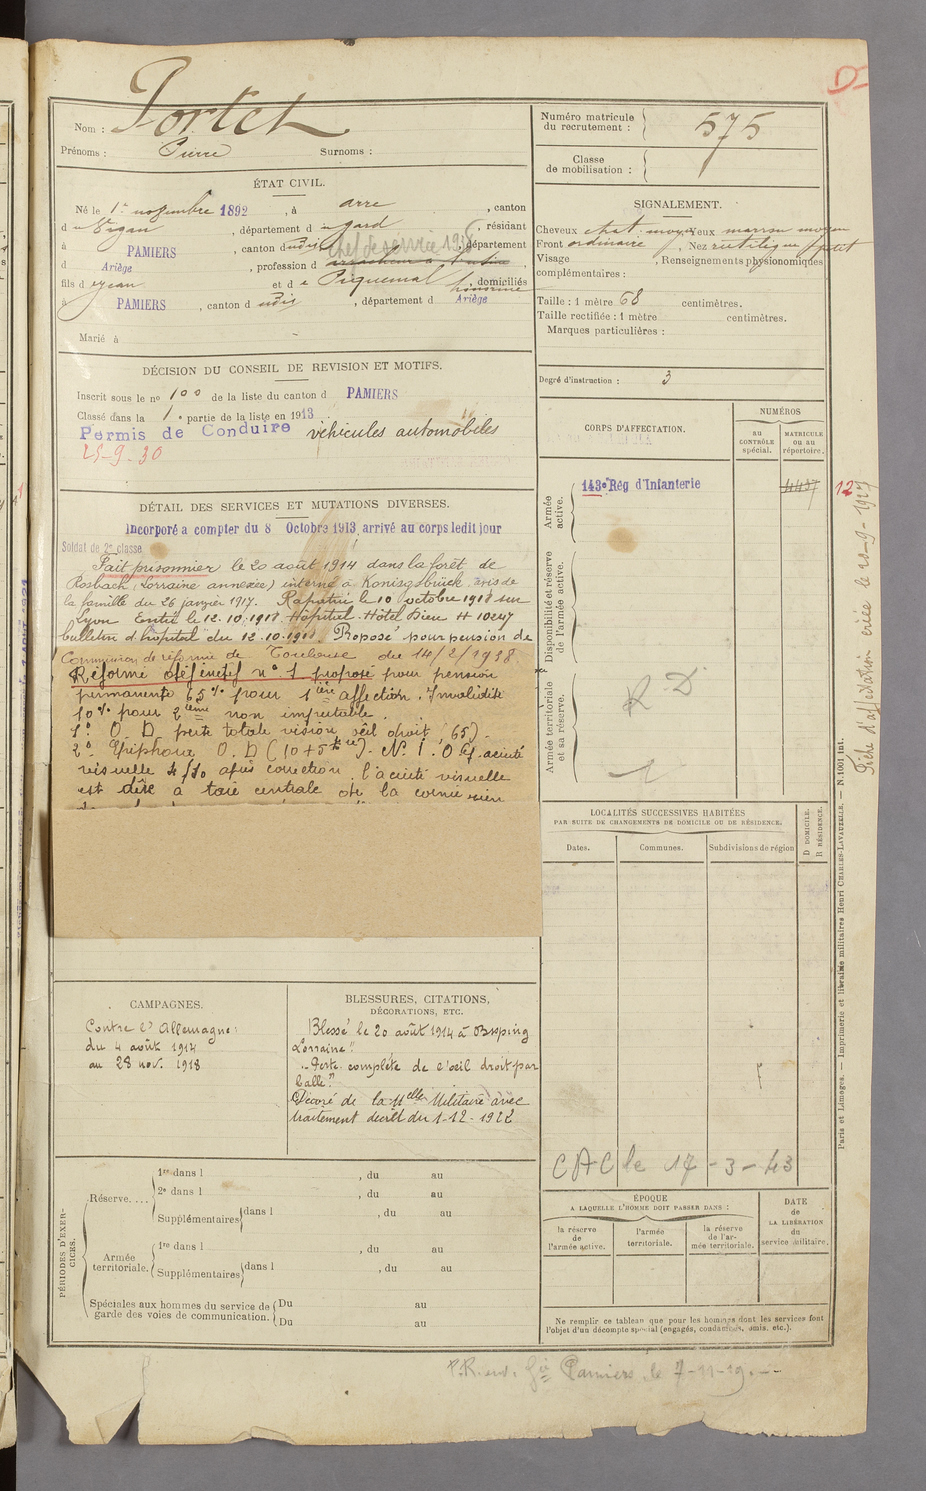 D
Nom : Portet
Prénoms : Pierre Surnoms :
Numéro matricule du recrutement : 575
Classe de mobilisation :
ÉTAT CIVIL.
Né le 1er novembre 1892, à arre, canton
du Vigan, département du gard, résidant
à PAMIERS, canton dudit chef de service 1938, département
d Ariège, profession d
fils de jean et de Piquemal, domiciliés
à PAMIERS, canton dudit, département d Ariège
Marié à
SIGNALEMENT.
Cheveux chat. moyen Yeux marron moyen
Front ordinaire, Nez rectiligne petit
Visage , Renseignements physionomiques
complémentaires :
Taille : 1 mètre 68 centimètres.
Taille rectifiée : 1 mètre centimètres.
Marques particulières :
Degré d'instruction : 3
DÉCISION DU CONSEIL DE REVISION ET MOTIFS.
Inscrit sous le no 100 de la liste du canton d PAMIERS
Classé dans la 1e partie de la liste en 1913
Permis de Conduire véhicules automobiles
25-9-30
DÉTAIL DES SERVICES ET MUTATIONS DIVERSES.
Incorporé a compter du 8 Octobre 1913 arrivé au corps ledit jour
Soldat de 2e classe
Fait prisonnier le 20 août 1914 dans la forêt de
Rosbach (Lorraine annexée) interné à Konigsbrück avis de
la famille du 26 janvier 1917. Rapatrié le 10 octobre 1918 sur
Lyon Entré le 12.10.1918 Hôpital Hôtel Dieu H 10247
bulletin d'hôpital du 12.10.1918. Proposé pour pension de
Commission de réforme de Toulouse du 14/2/1938
Réformé définitif no 1 proposé pour pension
permanente 65% pour 1ère affection. Invalidité
10% pour 2ème non imputable.
1o O. D. perte totale vision œil droit (65).
2o Epiphora O. D (10+5). N. I. O G. acuité
visuelle 4/10 après correction. l'acuité visuelle
est dûe à taie centrale de la cornée
CORPS D'AFFECTATION.
NUMÉROS
au CONTRÔLE spécial.
MATRICULE ou au répertoire.
Armée active.
143e Rég d'Infanterie
4437
12
Disponibilité et réserve de l'armée active.
Armée territoriale et sa réserve.
R D
1
Fiche d'affectation créée le 20-9-1927
LOCALITÉS SUCCESSIVES HABITÉES
PAR SUITE DE CHANGEMENTS DE DOMICILE OU DE RÉSIDENCE.
Dates.
Communes.
Subdivisions de région
D DOMICILE.
R RÉSIDENCE.
CAC le 17-3-43
CAMPAGNES.
Contre l'Allemagne:
du 4 août 1914
au 28 nov. 1918
BLESSURES, CITATIONS,
DÉCORATIONS, ETC.
Blessé le 20 août 1914 à Bisping
Lorraine"
"Perte complète de l'oeil droit par
balle"
Décoré de la Mlle Militaire avec
traitement décret du 1-12-1922
PÉRIODES D'EXERCICES.
Réserve....
1re dans l , du au
2e dans l , du au
Supplémentaires dans l , du au
Armée territoriale.
1re dans l , du au
Supplémentaires dans l , du au
Spéciales aux hommes du service de garde des voies de communication.
Du au
Du au
ÉPOQUE
A LAQUELLE L'HOMME DOIT PASSER DANS :
la réserve de l'armée active.
l'armée territoriale.
la réserve de l'armée territoriale.
DATE de LA LIBÉRATION du service militaire.
Ne remplir ce tableau que pour les hommes dont les services font
l'objet d'un décompte spécial (engagés, condamnés, omis, etc.).
Paris et Limoges. — Imprimerie et librairie militaires Henri CHARLES-LAVAUZELLE. — N. 1001 int.
Pamiers, le 7-11-19.